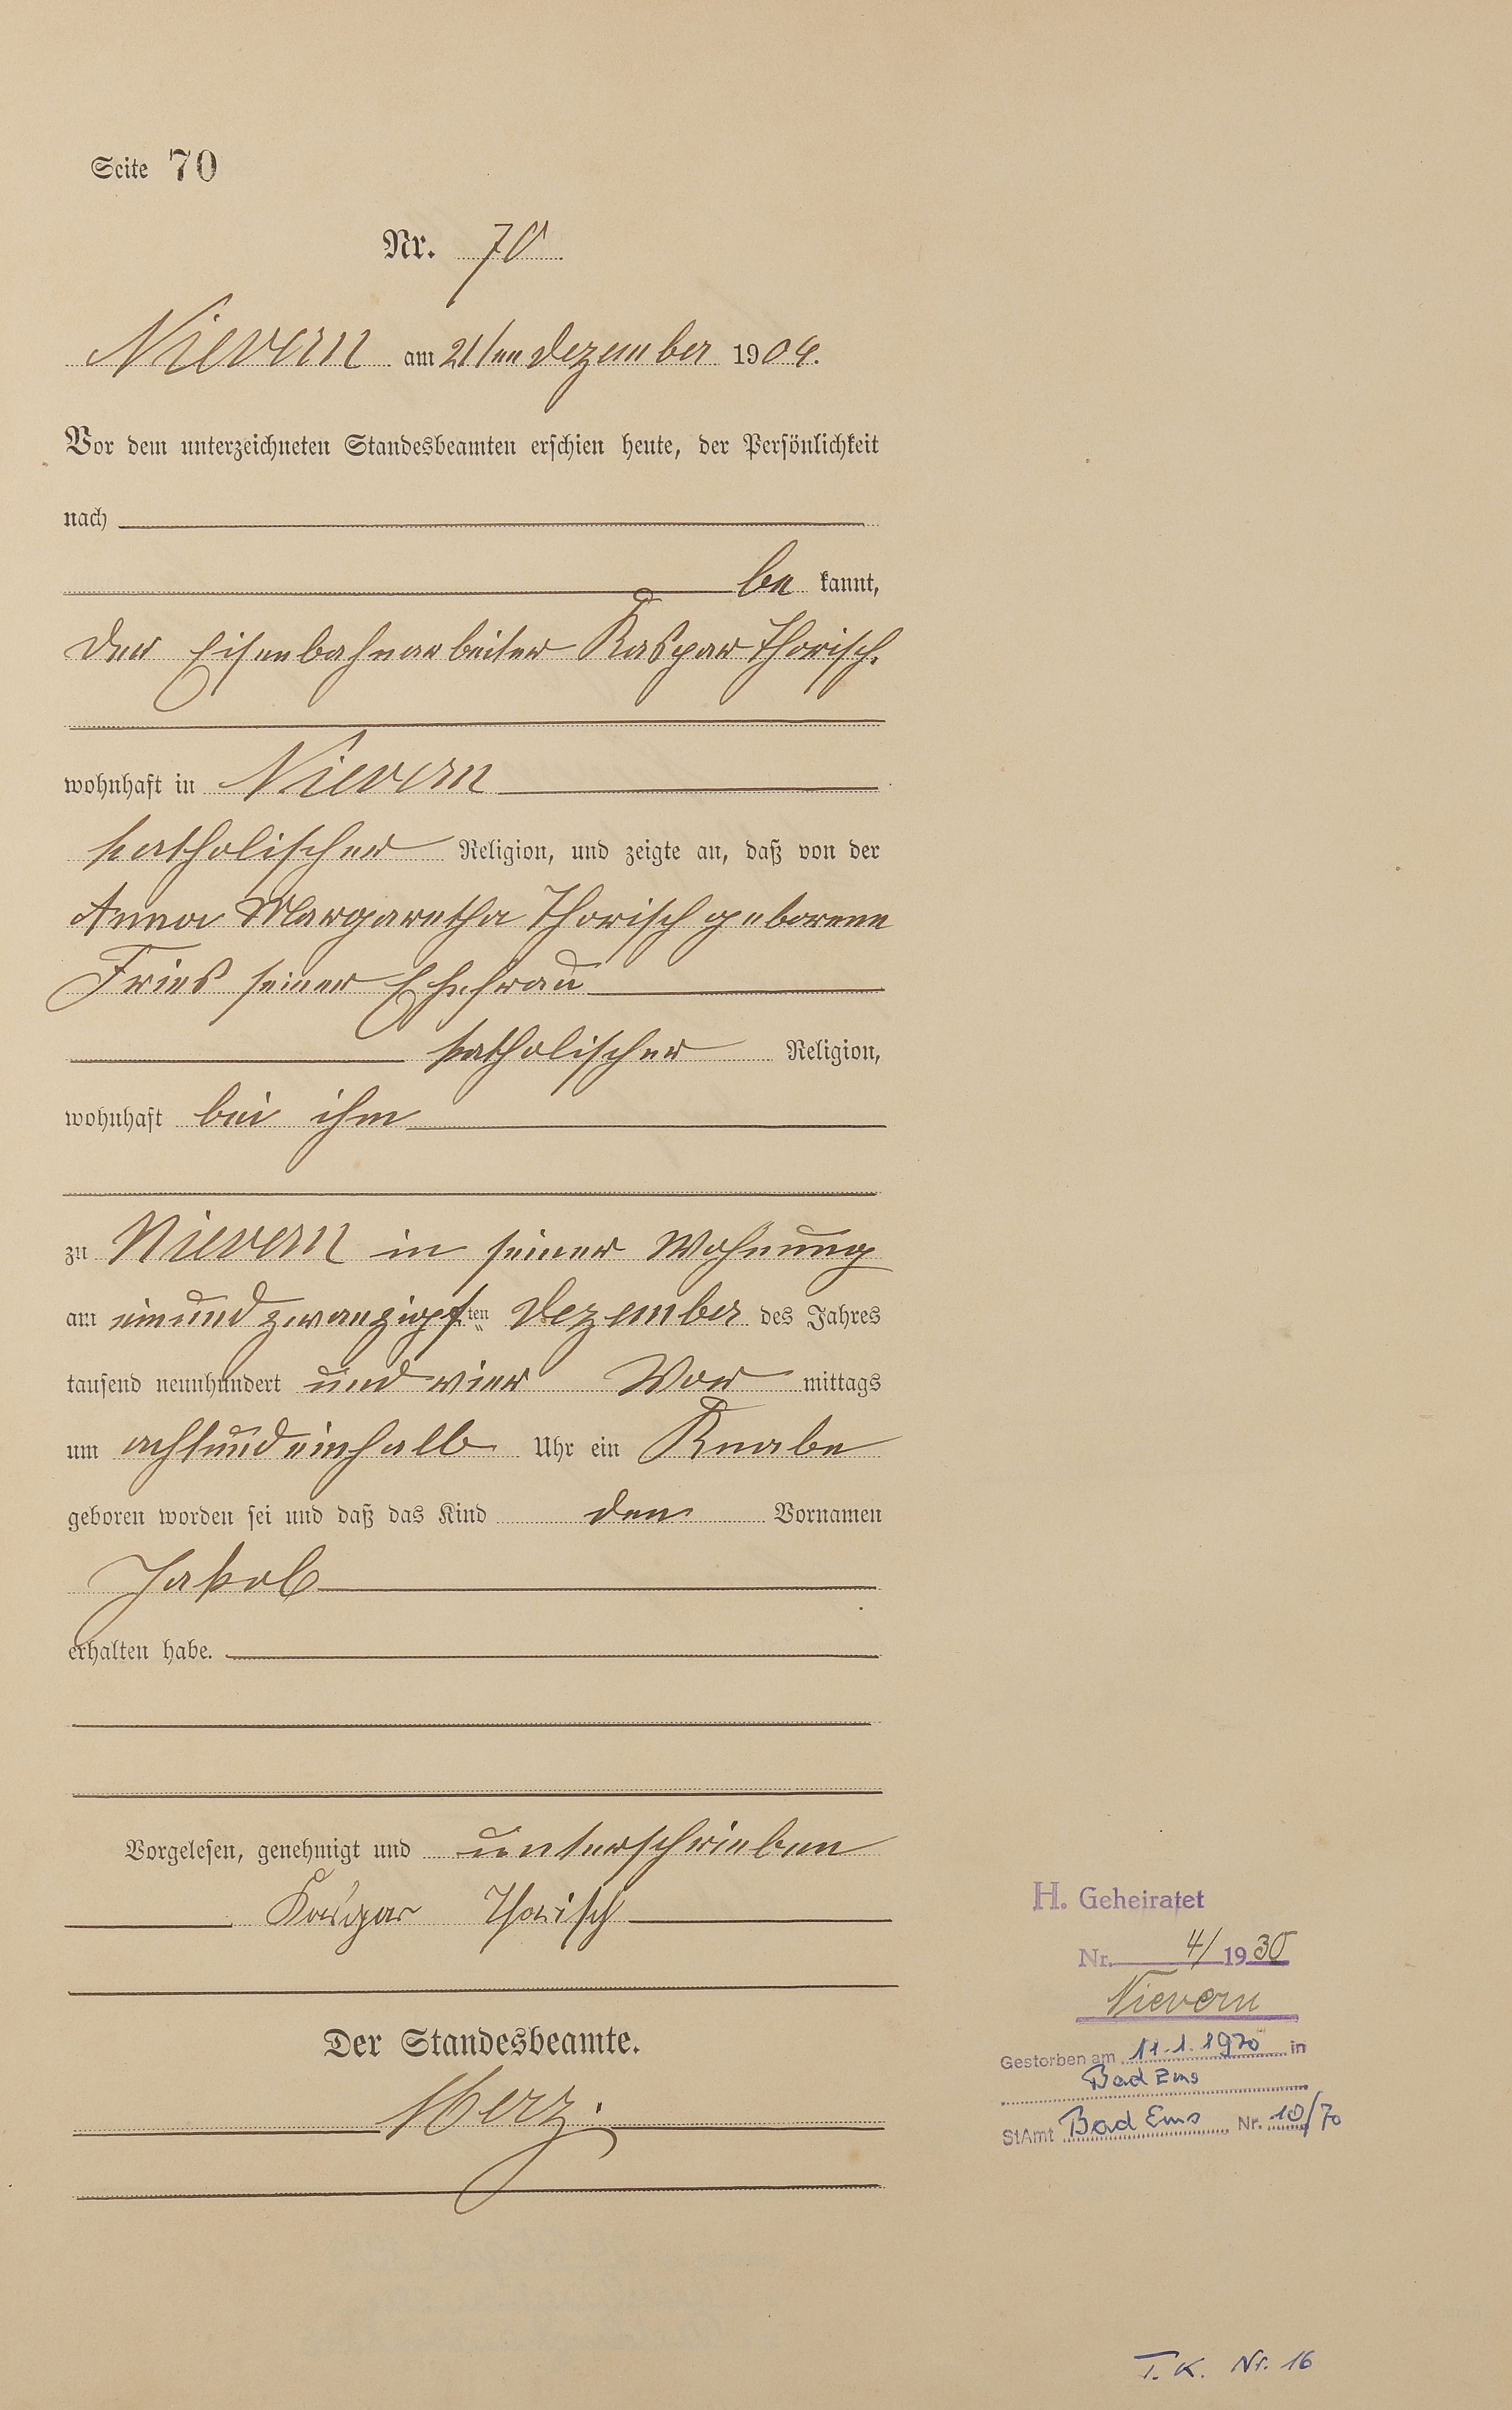 Seite 70
Nr. 70
Nievern am 21ten Dezember 1904.
Vor dem unterzeichneten Standesbeamten erschien heute, der Persönlichkeit
nach
be kannt,
der Eisenbahnarbeiter Kaspar Thorisch.
wohnhaft in Nievern
katholischer Religion, und zeigte an, daß von der
Anna Margaretha Thorisch geborenen
Fries seiner Ehefrau
katholischer Religion,
wohnhaft bei ihm
zu Nievern in seiner Wohnung
am einundzwanzigsten Dezember des Jahres
tausend neunhundert und vier Vor mittags
um achtundeinhalb Uhr ein Knabe
geboren worden sei und daß das Kind den Vornamen
Jakob
erhalten habe.
Vorgelesen, genehmigt und unterschrieben
Kaspar Thorisch
Der Standesbeamte.
Merz.
H. Geheiratet
Nr. 4/1930
Nievern
Gestorben am 11.1.1970 in
Bad Ems
StAmt Bad Ems Nr. 10/70
T. K. Nr. 16